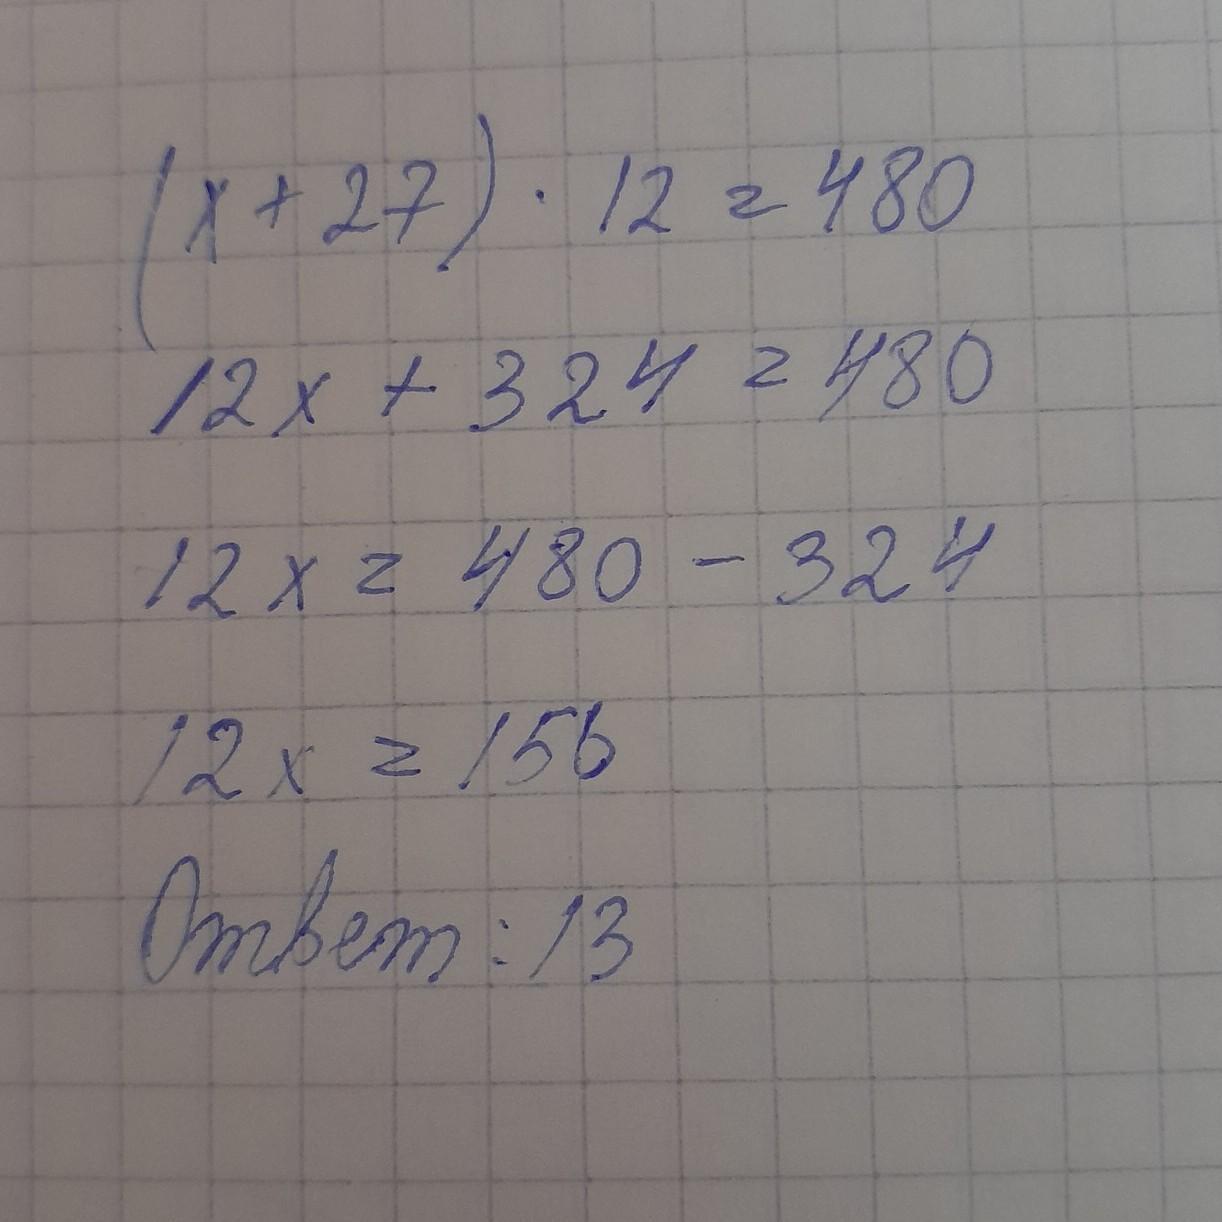 (x+27)·12=480
12x+324=480
12x=480-324
12x=156
Ответ:13